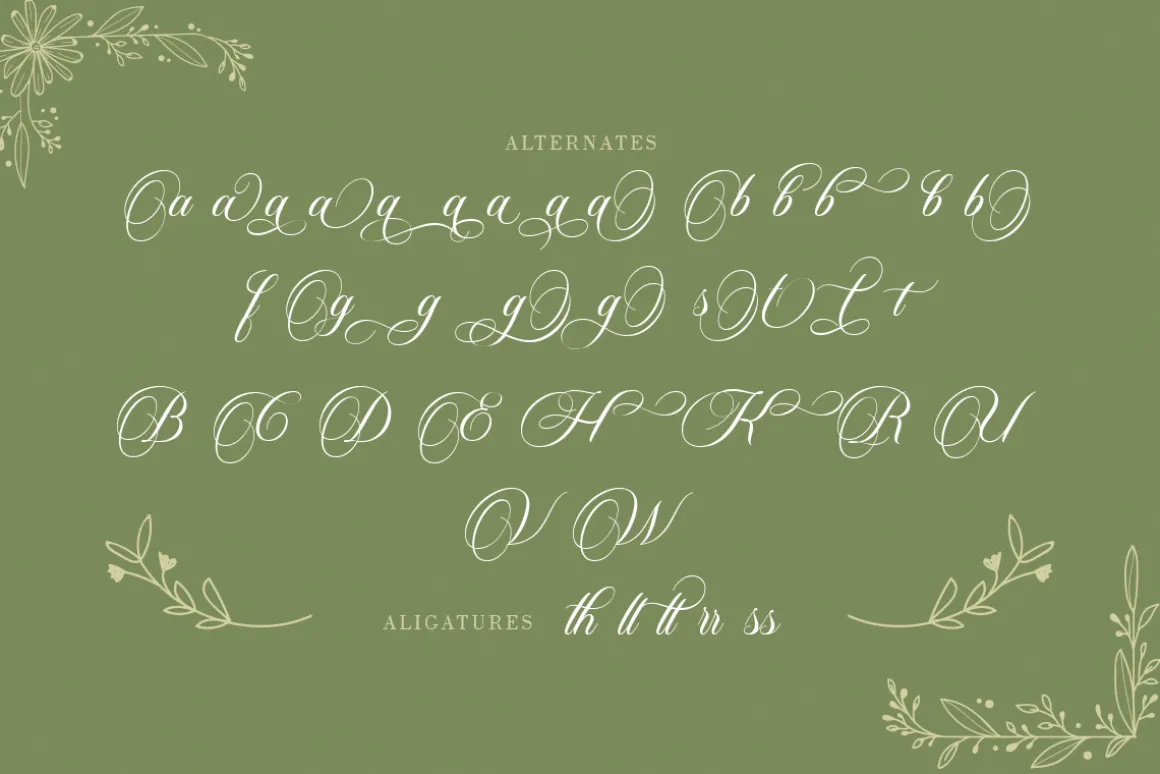 ALTERNATES
a a a a a a a a a b b b b b
f g g g g s t t t
B C D E H K R U
V W
ALIGATURES th lt tt rr ss